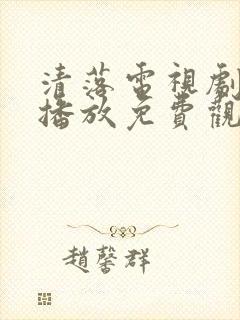 清落電視劇
播放免費觀
趙馨群